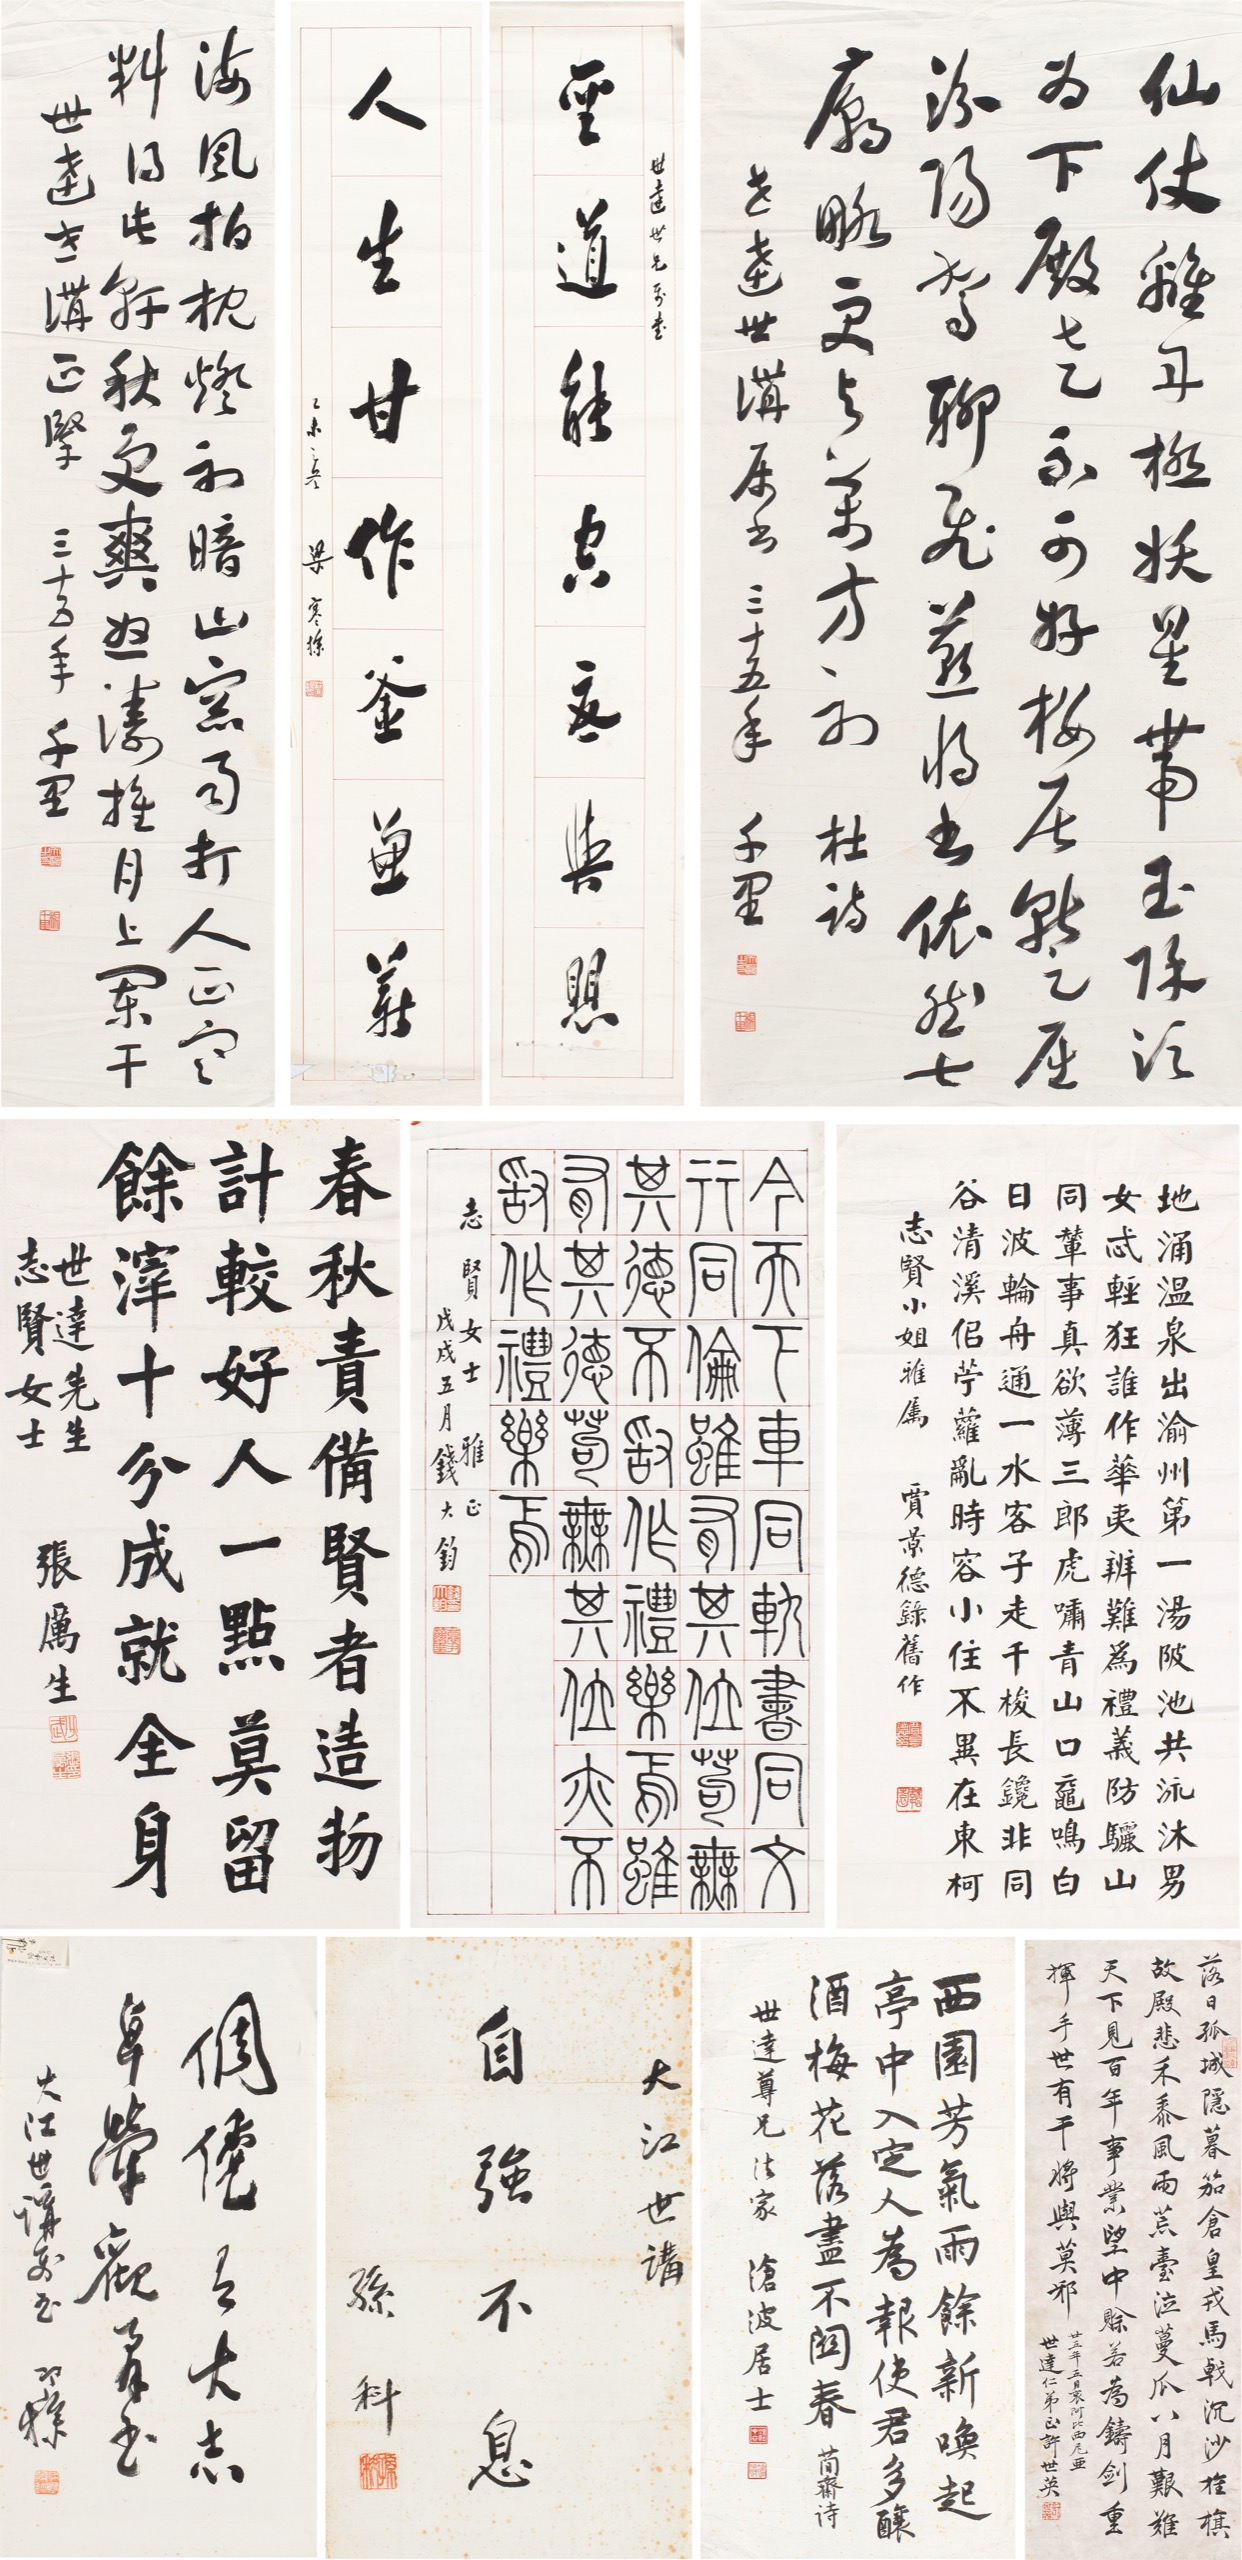 仙仗離丹極妖星帶玉除須
為下殿走不可好樓居暫屈
汾陽駕聊飛燕將書依然七
廟略更與萬方初 杜詩
世達世講屬書 三十五年 千里
世達世兄
聖道能
人生甘作釜兼薪
乙未夏 梁寒操
海風拍枕燈初暗山窗雨打人正寒
料得此秋更爽怒濤推月上闌干
世達世講正擘 三十五年 千里
地涌溫泉出渝州第一湯陂池共泳沐男
女忒輕狂誰作華夷辨難為禮義防驪山
同輦事真欲薄三郎虎嘯青山口黿鳴白
日波輪舟通一水客子走千梭長鑱非同
谷清溪侶苧蘿亂時容小住不異在東柯
志賢小姐雅屬 賈景德錄舊作
今天下車同軌書同文
行同倫雖有其位苟無
其德不敢作禮樂焉雖
有其德苟無其位亦不
敢作禮樂焉
志賢女士雅正
戊戌五月錢大鈞
春秋責備賢者造物
計較好人一點莫留
餘滓十分成就全身
世達先生
志賢女士 張厲生
落日孤城隱暮笳倉皇戎馬戟沉沙旌旗
故殿悲禾黍風雨荒臺泣蔓瓜八月艱難
天下見百年事業望中賒若為鑄劍重
揮手世有干將與莫邪 廿五年五月哀阿比西尼亞
世達仁弟正 許世英
西園芳氣雨餘新喚起
亭中入定人為報使君多釀
酒梅花落盡不關春 簡齋詩
世達尊兄法家 滄波居士
大江世講
自強不息
孫科
倜儻有大志
卓犖觀群書
大江世講